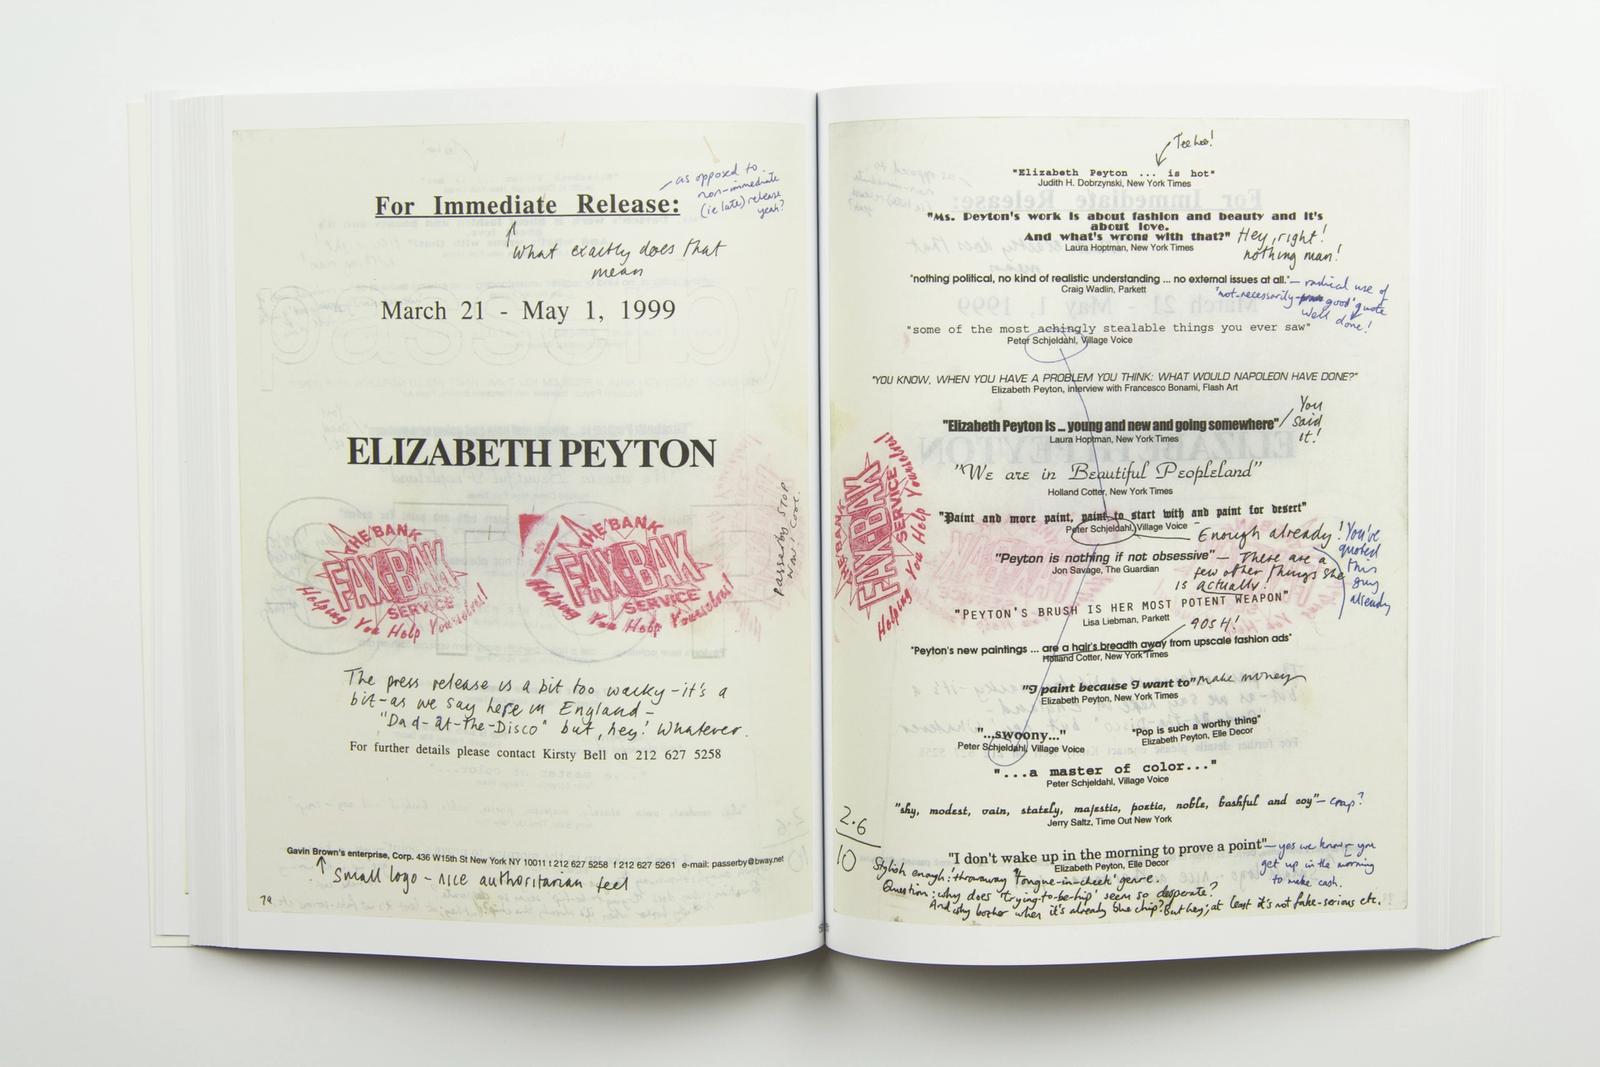 as opposed to
non-immediate
(ie late) release
yeah?
For Immediate Release:
What exactly does that
mean
March 21 - May 1, 1999
ELIZABETH PEYTON
THE BANK
FAX-BAK
SERVICE
Helping You Help Yourselves!
THE BANK
FAX-BAK
SERVICE
Helping You Help Yourselves!
The press release is a bit too wacky-it's a
bit-as we say here in England-
"Dad-at-the-Disco" but, hey! Whatever.
For further details please contact Kirsty Bell on 212 627 5258
Gavin Brown's enterprise, Corp. 436 W15th St New York NY 10011 t 212 627 5258 f 212 627 5261 e-mail: passerby@bway.net
Small logo - nice authoritarian feel
Tee hee!
"Elizabeth Peyton ... is hot"
Judith H. Dobrzynski, New York Times
"Ms. Peyton's work is about fashion and beauty and it's
about love.
And what's wrong with that?" Hey, right!
nothing man!
Laura Hoptman, New York Times
"nothing political, no kind of realistic understanding ... no external issues at all." - radical use of
'not-necessarily- good' quote
well done!
Craig Wadlin, Parkett
"some of the most achingly stealable things you ever saw"
Peter Schjeldahl, Village Voice
"YOU KNOW, WHEN YOU HAVE A PROBLEM YOU THINK: WHAT WOULD NAPOLEON HAVE DONE?"
Elizabeth Peyton, interview with Francesco Bonami, Flash Art
"Elizabeth Peyton is ... young and new and going somewhere"
You
said
it!
Laura Hoptman, New York Times
"We are in Beautiful Peopleland"
Holland Cotter, New York Times
"Paint and more paint, paint to start with and paint for desert"
Peter Schjeldahl, Village Voice - Enough already!
You've
quoted
this
guy
already
"Peyton is nothing if not obsessive" - There are a
few other things she
is actually!
Jon Savage, The Guardian
"PEYTON'S BRUSH IS HER MOST POTENT WEAPON"
Lisa Liebman, Parkett
GOSH!
"Peyton's new paintings ... are a hair's breadth away from upscale fashion ads"
Holland Cotter, New York Times
"I paint because I want to" make money
Elizabeth Peyton, New York Times
"...swoony..."
Peter Schjeldahl, Village Voice
"Pop is such a worthy thing"
Elizabeth Peyton, Elle Decor
"...a master of color..."
Peter Schjeldahl, Village Voice
"shy, modest, vain, stately, majestic, poetic, noble, bashful and coy" - crap?
Jerry Saltz, Time Out New York
"I don't wake up in the morning to prove a point" - yes we know - you
get up in the morning
to make cash.
Elizabeth Peyton, Elle Decor
2.6
10
Stylish enough! throwaway 'tongue-in-cheek' genre.
Question: why does 'trying-to-be-hip' seem so desperate?
And why bother when it's already blue chip? But hey, at least it's not fake-serious etc.
THE BANK
FAX-BAK
SERVICE
Helping You Help Yourselves!